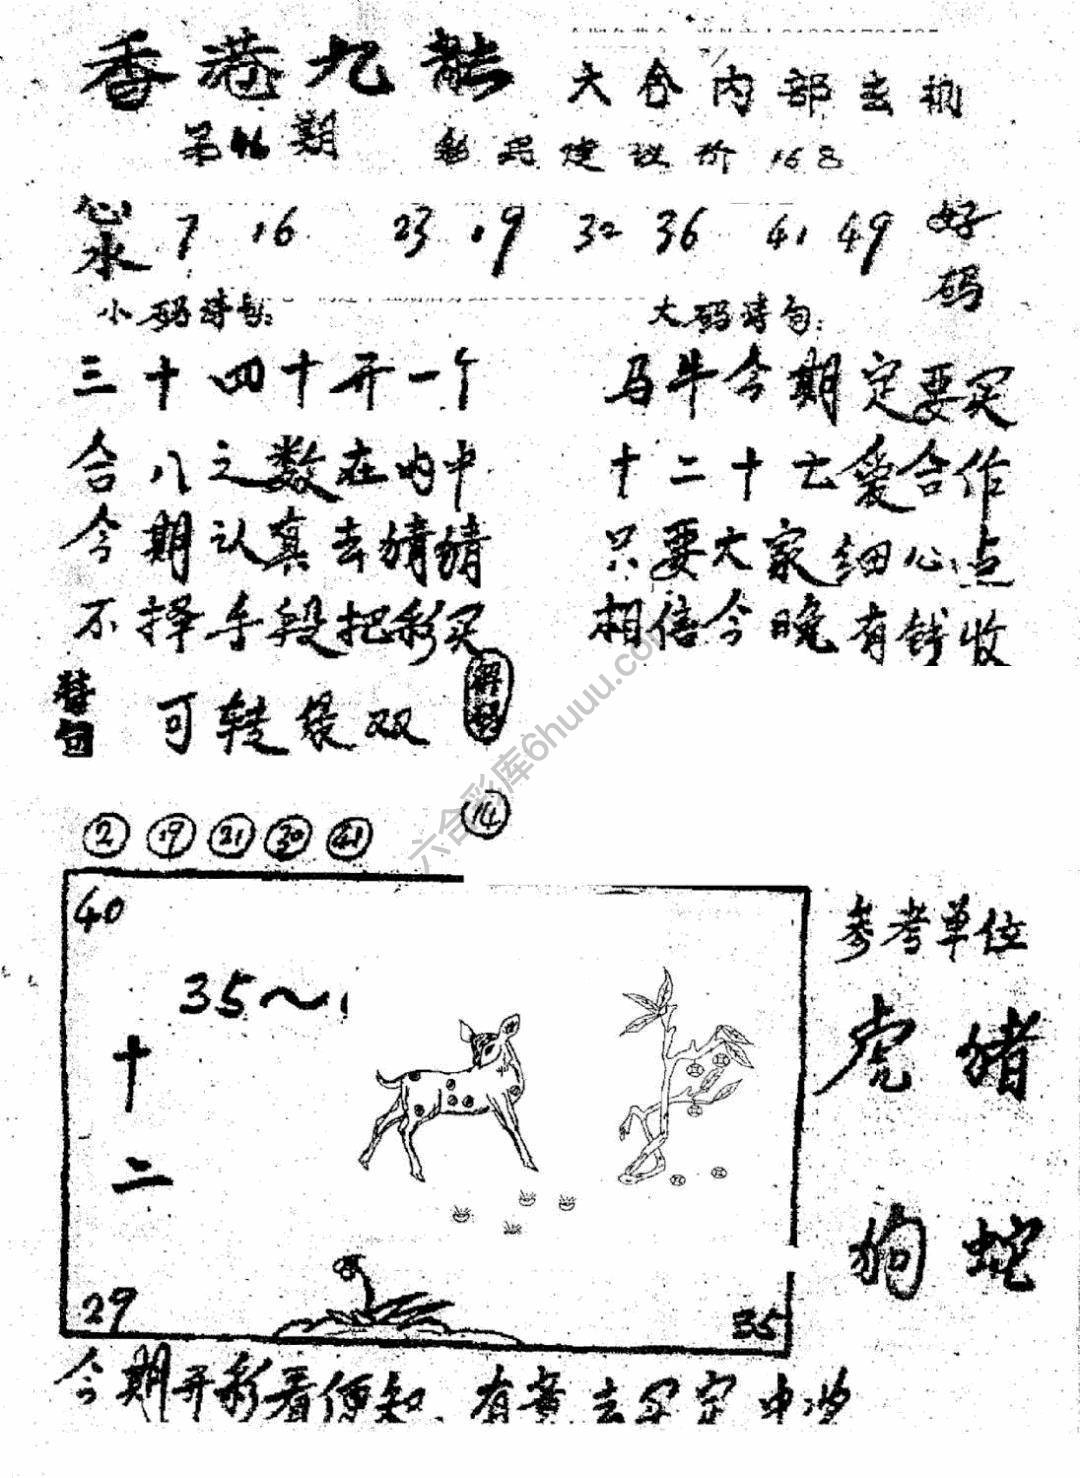 香港九龍 六合内部玄机
第46期 彩民建议价 16元
心水 7 16 23 19 32 36 41 49 好码
小码诗句: 大码诗句:
三十四十开一个 马牛今期定要买
合八之数在内中 十二十七爱合作
今期认真去猜猜 只要大家细心点
不择手段把彩买 相信今晚有钱收
赞句 可转绿双
2 19 21 30 41 14
六合彩库6huuu.com
40
35～1
十
二
29
35
参考单位
虎 猪
狗 蛇
今期开彩看便知.有